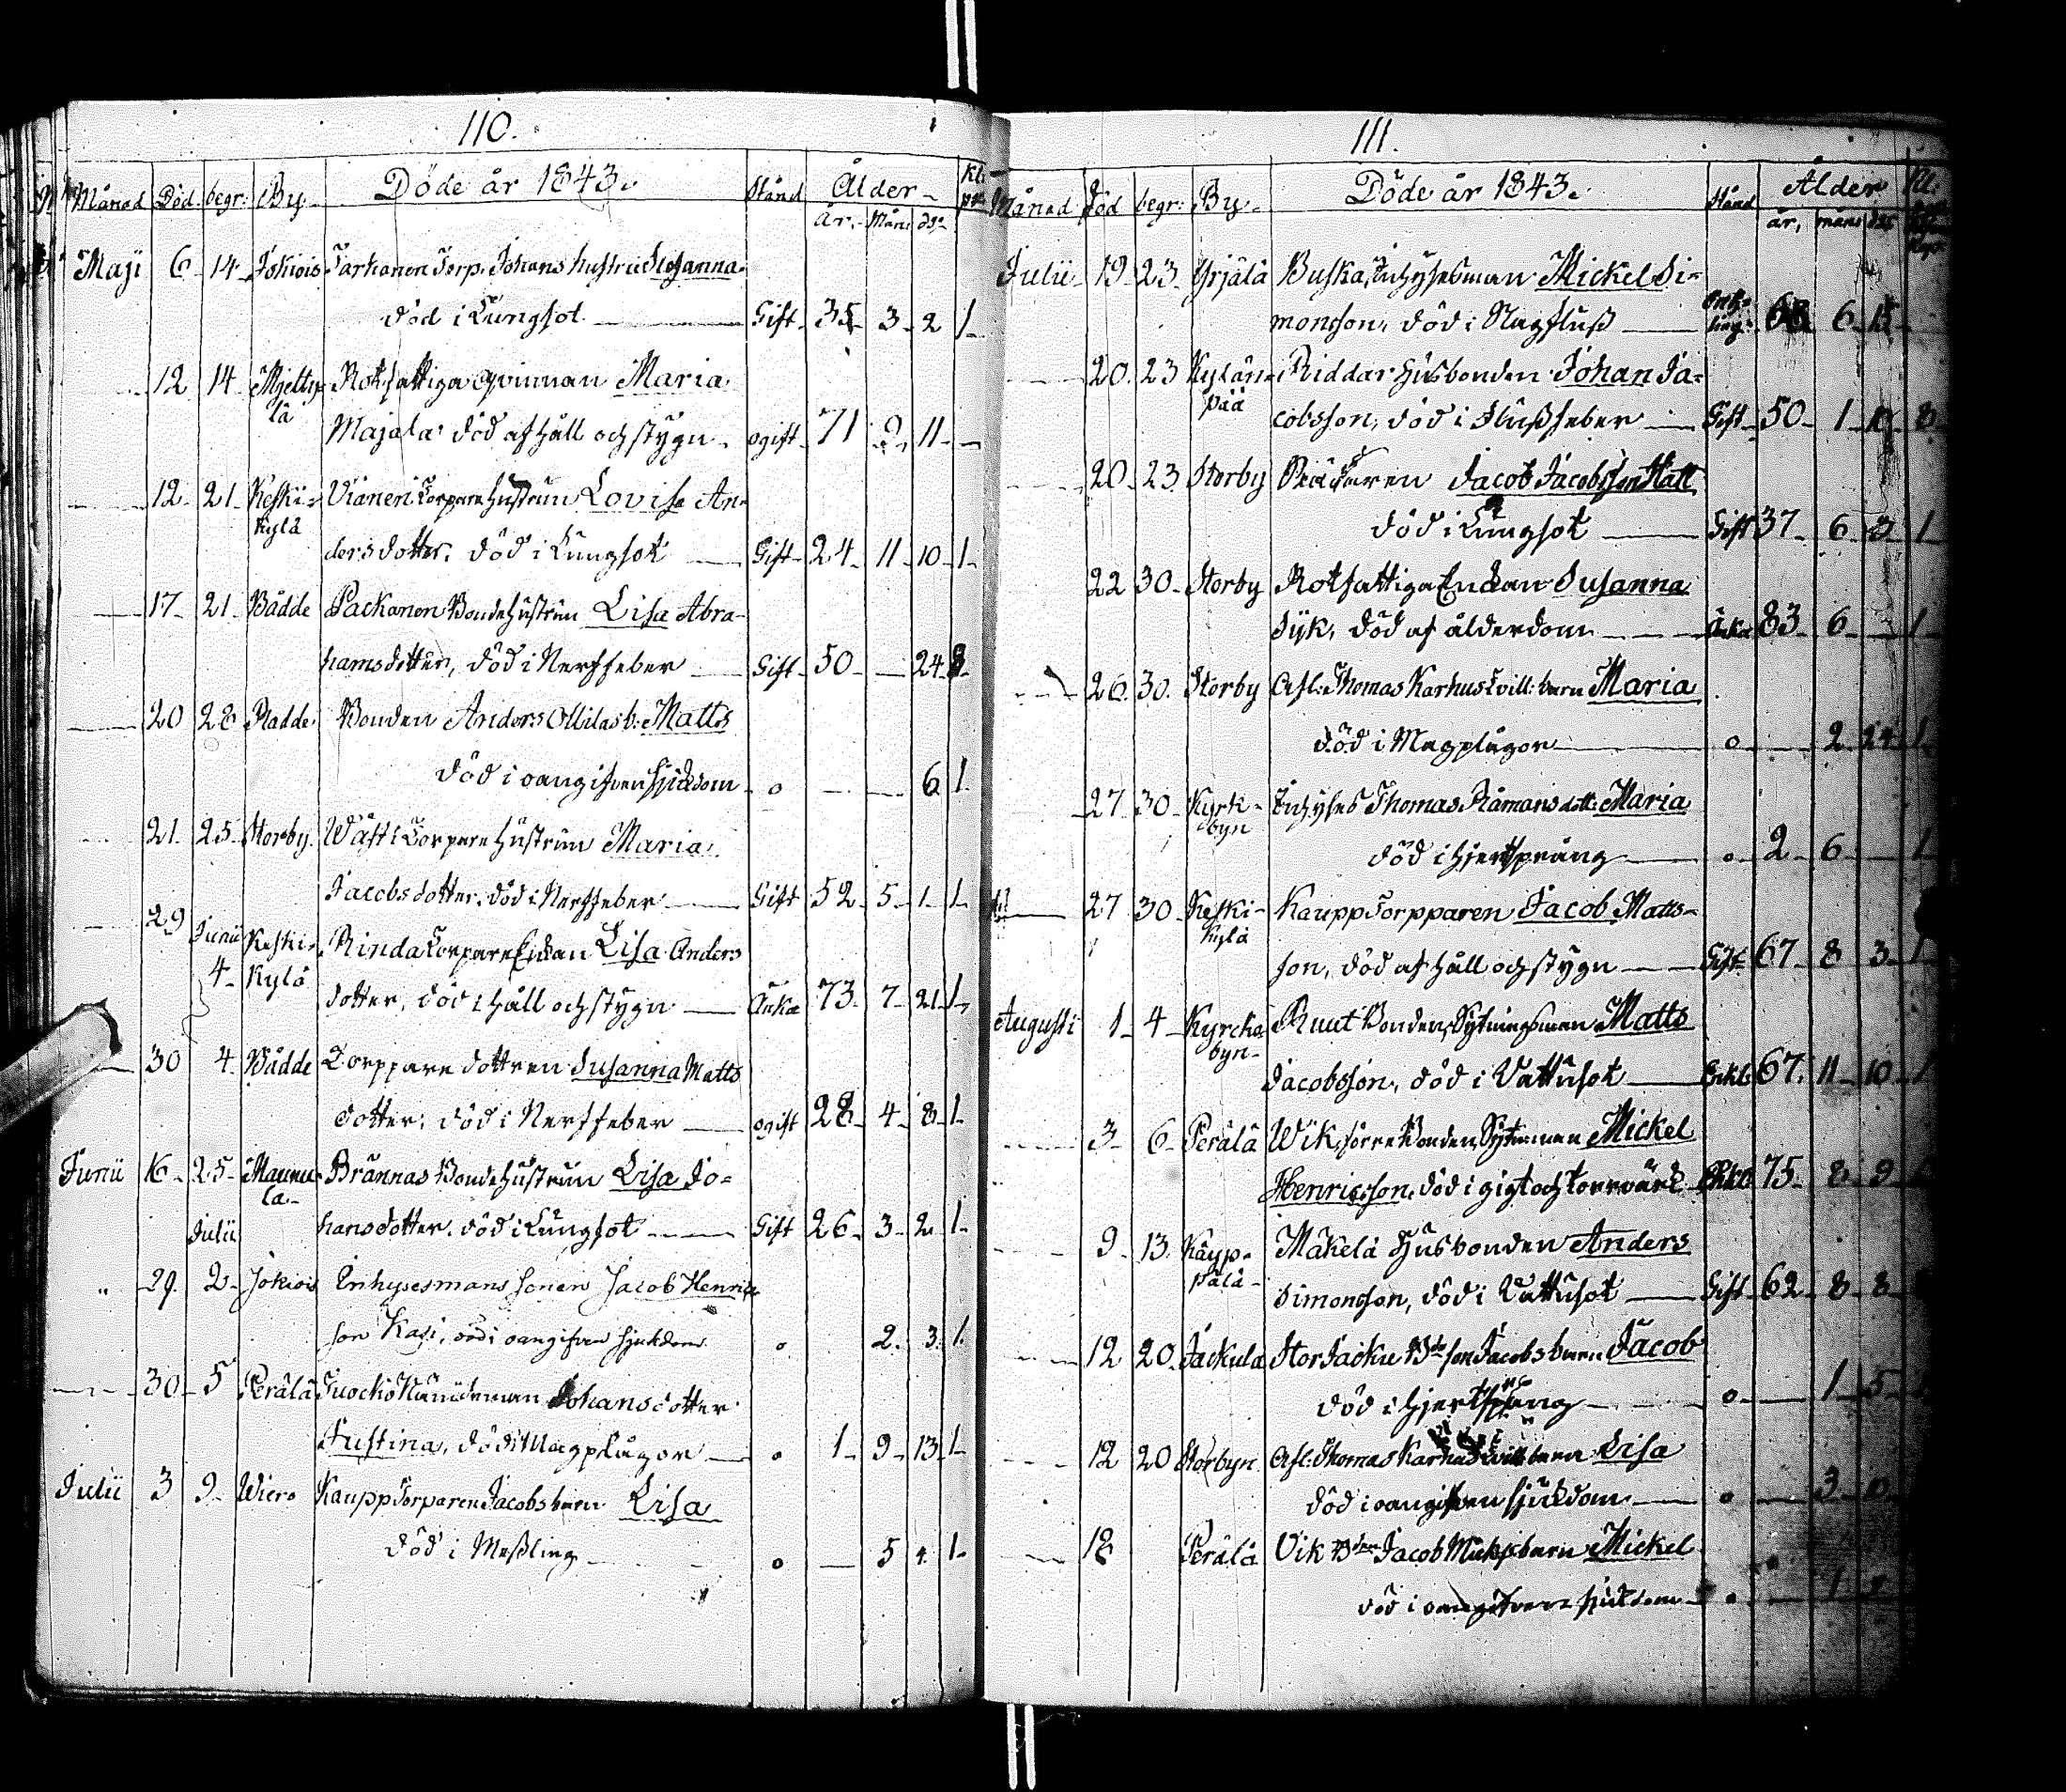 110.
Månad Död. begr: By. Döde år 1843. Stånd Ålder Kl:
år. Mån: dg:
Maji 6 14 Jokiois Torp. Johans hustru Susanna
död i Lungsot Gift 35 3 2 1
12 14 Mjelty- Rotfattiga qvinnan Maria
lä
Majala död af håll och stygn ogift 71 11
12 21 Keski- Vianeri Torpare Hustrun Lovisa An-
kylä
dersdotter, död i Lungsot Gift 24 11 10 1
17 21 Bådde Packanen Bonde Hustrun Lisa Abra-
hamsdotter, död i Nerffeber Gift 50 24 8
20 28 Radde Bonden Anders Ollilas b: Matts
död i oangifven sjukdom o 6 1
21 25 Storby Torpare Hustrun Maria
Jacobsdotter, död i Nerffeber Gift 52 5 1 1
29 Junii Keski- Rinda Torpare Enkan Lisa Anders
4 Kylä
dotter, död i håll och stygn Änka 73 7 21 1
30 4 Bådde Torppare dottren Susanna Matts
dotter, död i Nerffeber ogift 28 4 8 1
Junii 16 25 Maunu- Brännas Bonde Hustrun Lisa Jo-
la
Julii hansdotter, död i Lungsot Gift 26 3 2 1
" 29 2 Jokiois Enhysesmans sonen Jacob Henrics
son död i oangifven sjukdom o 2 3 1
30 5 Perälä Juocko Nämdeman Johans dotter
Justina, död i Magplågor o 1 9 13 1
Julii 3 9 Wiero Kaupp Torparen Jacobs barn Lisa
död i Meßling o 5 4 1
111.
Månad död begr: By. Döde år 1843. Stånd Ålder Kl:
år, mån:
Julii 19 23 Yrjälä Buska, Inhysesman Mickel Si-
monsson, död i 6
20 23 Kylän- Riddar Husbonden Johan Ja-
pää
cobsson, död i Flußfeber Gift 50 1 8
20 23 Storby Jacob Jacobsson Hatt
död i Lungsot Gift 37 6 3 1
22 30 Storby Rotfattiga Enkan Susanna
Syk, död af ålderdom Änka 83 6 1
26 30 Storby Afl: Thomas Karhus tvill: barn Maria
död i Magplågor o 2 24 1
27 30 Kyrk- Inhyses Thomas Råmans dott: Maria
byn
död i Hjertsprång o 2 6 1
27 30 Keski- Kaupp Torpparen Jacob Matts-
kylä
son, död af håll och stygn Gift 67 8 3 1
Augusti 1 4 Kyrcko Ruut Bonden, Sytningsman Matts
byn
Jacobsson, död i Vattusot Enkl: 67 11 10 1
3 6 Perälä Wik, förre Bonden, Sytn:man Mickel
Henricsson, död i gigt och torrvärk 75 8 9
9 13 Käyp- Mäkelä Husbonden Anders
pälä
Simonsson, död i Vattusot Gift 62 8 8
12 20 Jackula Stor Jacku Bde son Jacobs barn Jacob
död i Hjertsprång o 1 5
12 20 Storbyn Afl: Thomas Karhus tvill: barn Lisa
död i oangifven sjukdom o 3
18 Perälä Vik Bden Jacob barn Mickel
död i oangifven sjukdom o 1